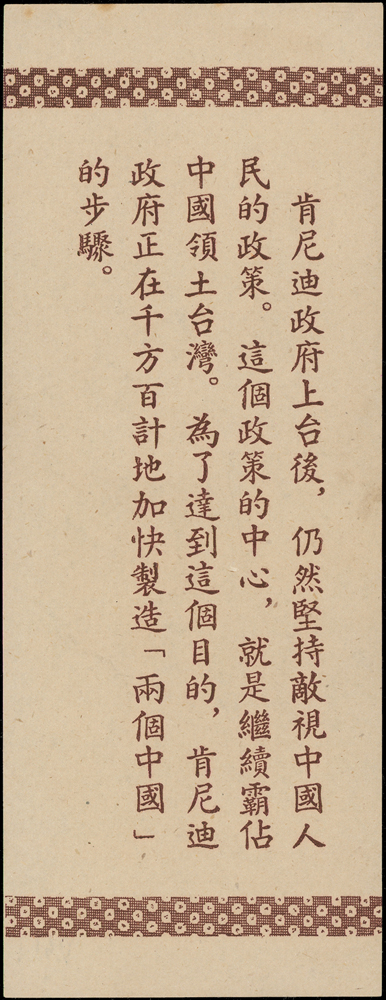 肯尼迪政府上台後，仍然堅持敵視中國人
民的政策。這個政策的中心，就是繼續霸佔
中國領土台灣。為了達到這個目的，肯尼迪
政府正在千方百計地加快製造「兩個中國」
的步驟。